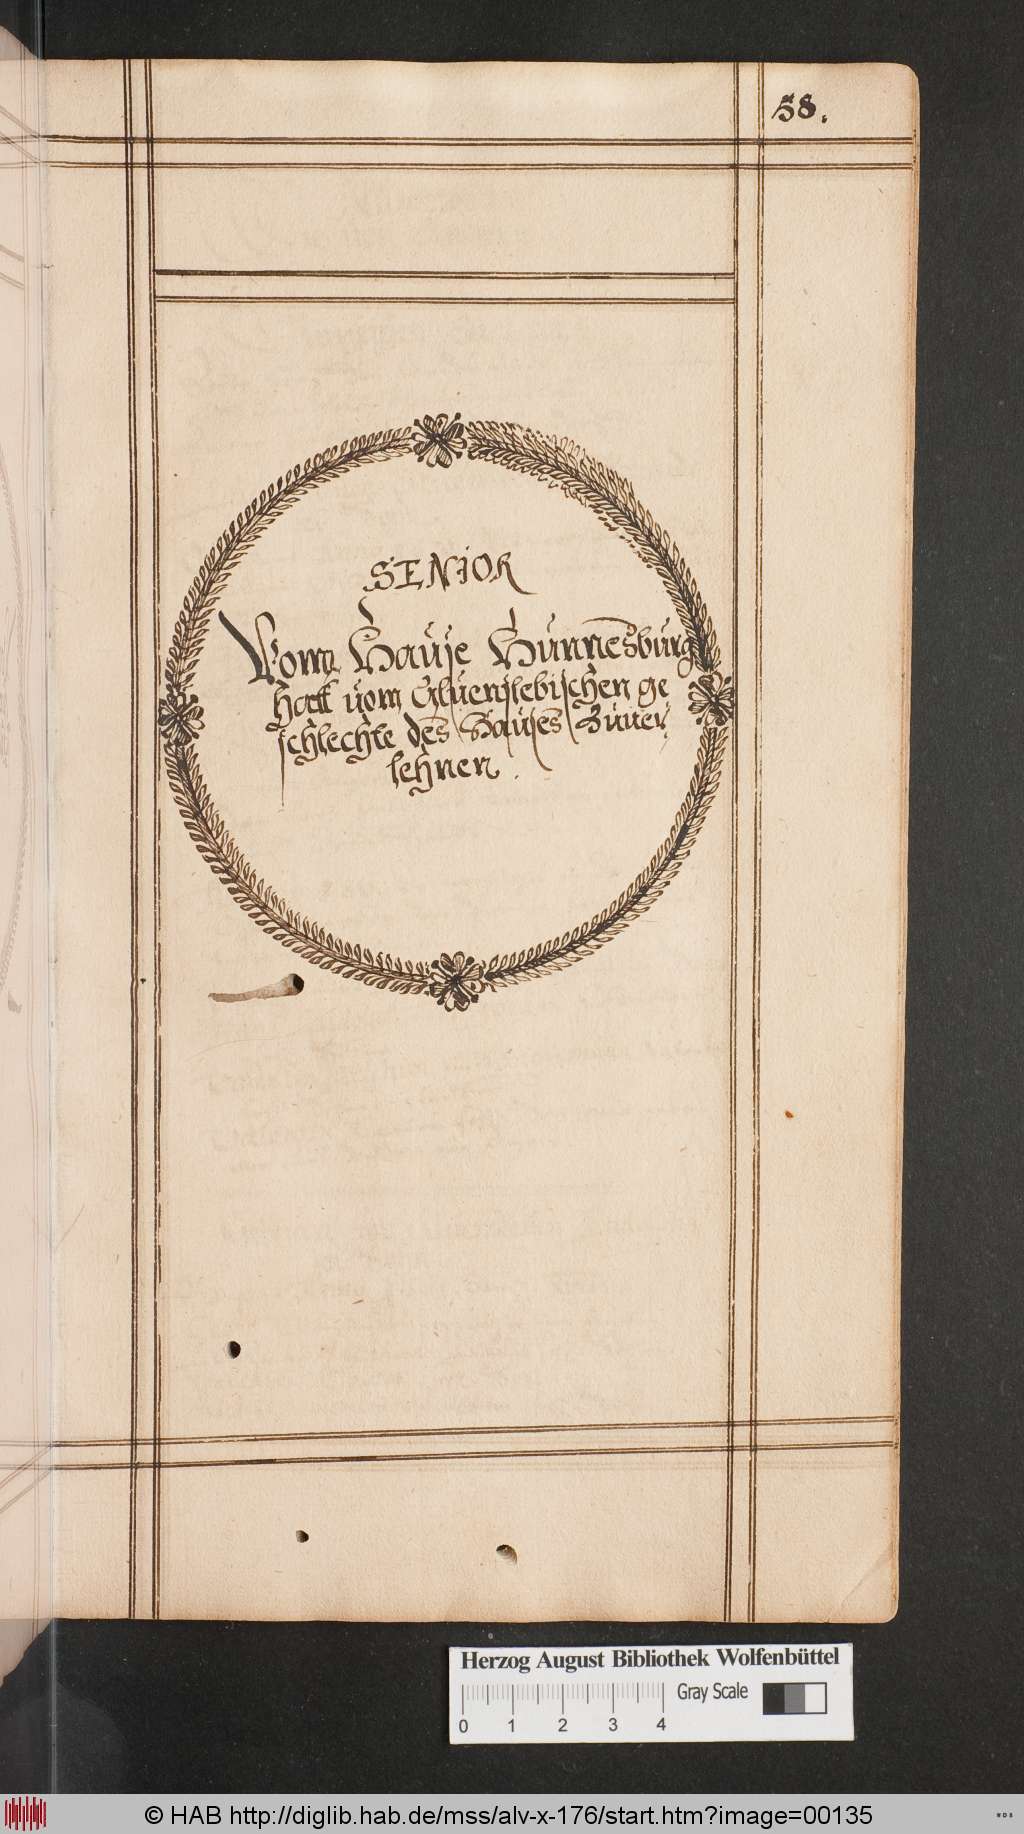 58.
SENIOR
Vom Hause Hünnesburg
hatt vom Aluenslebischen ge
schlechte des Hauses
lehnen.
Herzog August Bibliothek Wolfenbüttel
Gray Scale
0 1 2 3 4
© HAB http://diglib.hab.de/mss/alv-x-176/start.htm?image=00135